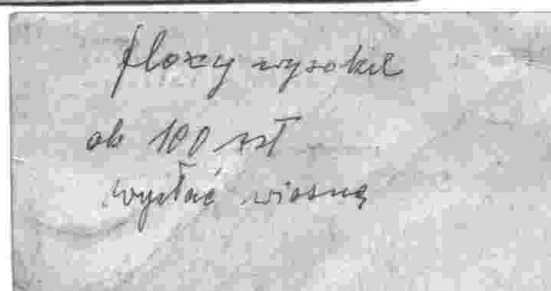 floxy wysokie
ok 100 szt
wysłać wiosną